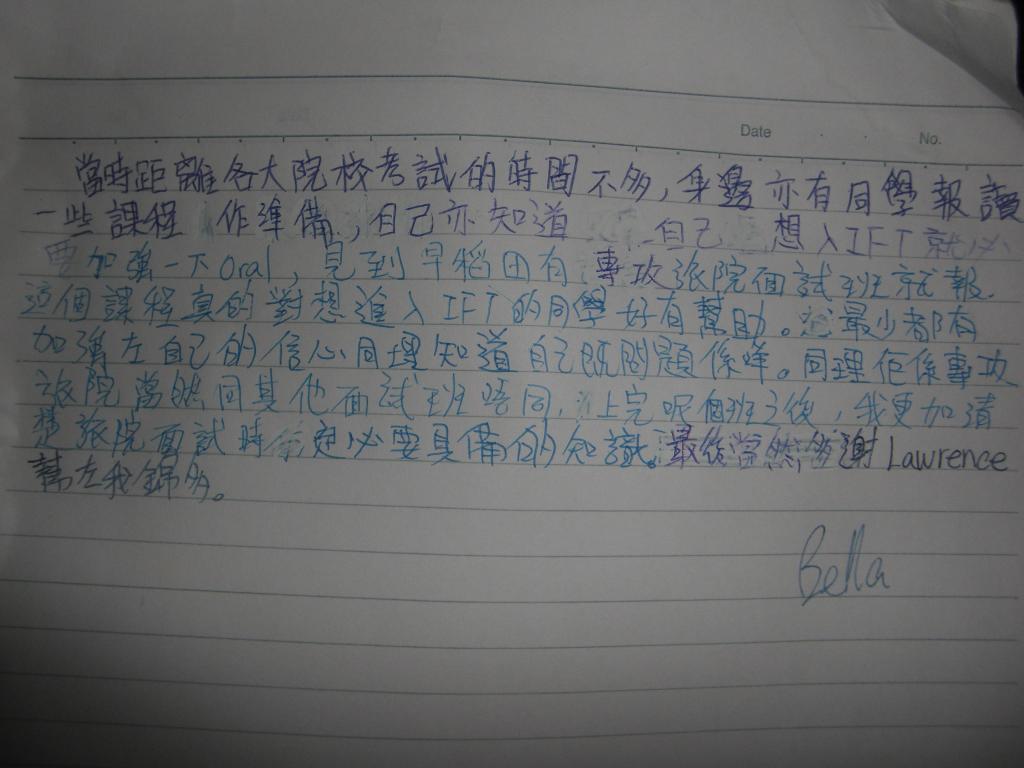 Date No.
當時距離各大院校考試的時間不多，身邊亦有同學報讀
一些課程 作準備，自己亦知道 自己 想入IFT就必
要加強一下Oral，見到早稻田有 專攻旅院面試班就報．
這個課程真的對想進入IFT的同學好有幫助。最少都有
加強左自己的信心同埋知道自己既問題係咩。同埋佢係專攻
旅院當然同其他面試班唔同，上完呢個班之後，我更加清
楚旅院面試時 定必要具備的知識。最後當然多謝Lawrence
幫左我錦多。
Bella